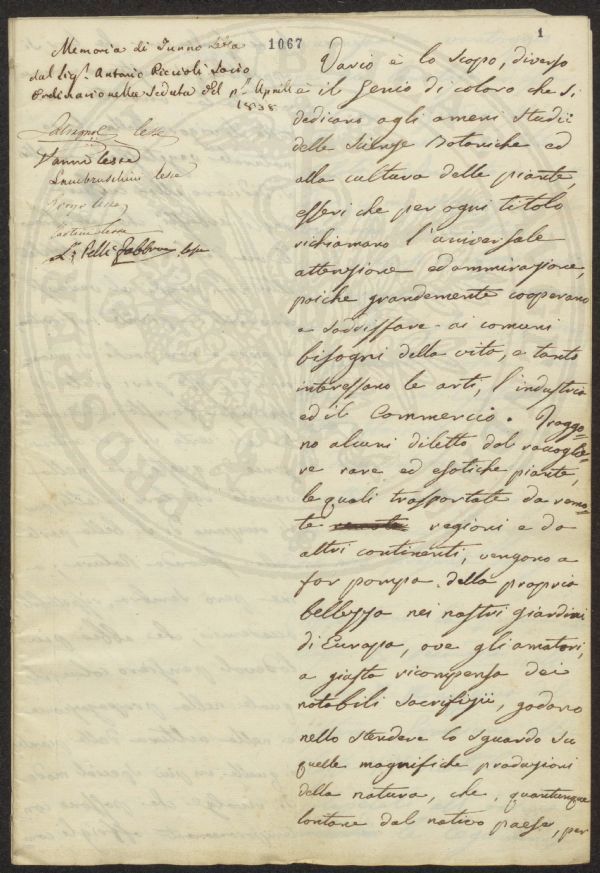 1
1067
Memoria di Turno letta
dal Sig.r Antonio Piccioli Socio
Ordinario nella Seduta del p.mo Aprile
1838
lesse
Vanni lesse
Lambruschini lesse
lesse
lesse
L.r Pelli Fabbroni lesse
Vario è lo scopo, diverso
è il Genio di coloro che si
dedicano agli ameni studii
delle Scienze Botaniche ed
alla cultura delle piante,
esseri che per ogni titolo
richiamano l'universale
attenzione ed ammirazione,
poiche grandemente cooperano
a soddisfare ai comuni
bisogni della vita, e tanto
interessano le arti, l'industria
ed il Commercio. Traggo=
no alcuni diletto dal raccoglie=
re rare ed esotiche piante,
le quali trasportate da remo=
te remote regioni e da
altri continenti, vengono a
far pompa della propria
bellezza nei nostri giardini
di Europa, ove gli amatori,
a giusta ricompensa dei
notabili sacrifizii, godano
nello stendere lo sguardo su
quelle magnifiche produzioni
della natura, che, quantunque
lontane dal nativo paese, per